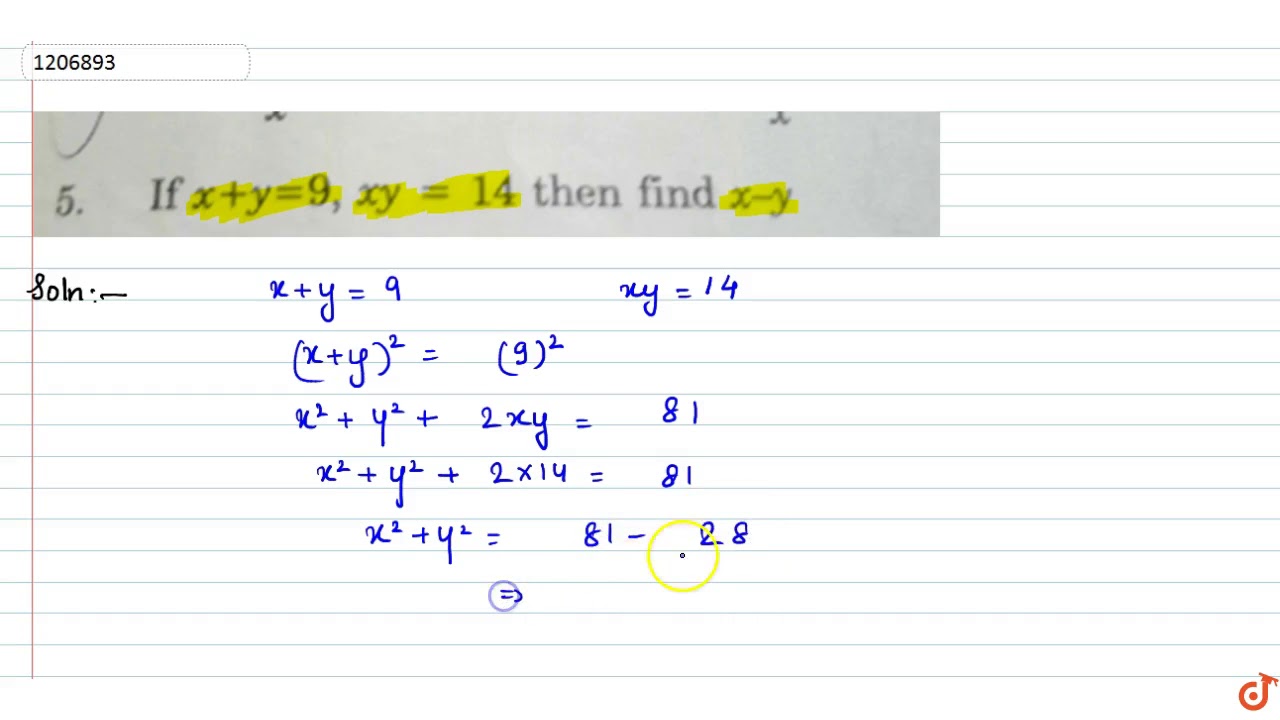 1206893
x x
5. If x+y=9, xy = 14 then find x–y
Soln:— x+y = 9 xy = 14
(x+y)² = (9)²
x² + y² + 2xy = 81
x² + y² + 2×14 = 81
x² + y² = 81 - 28
⇒